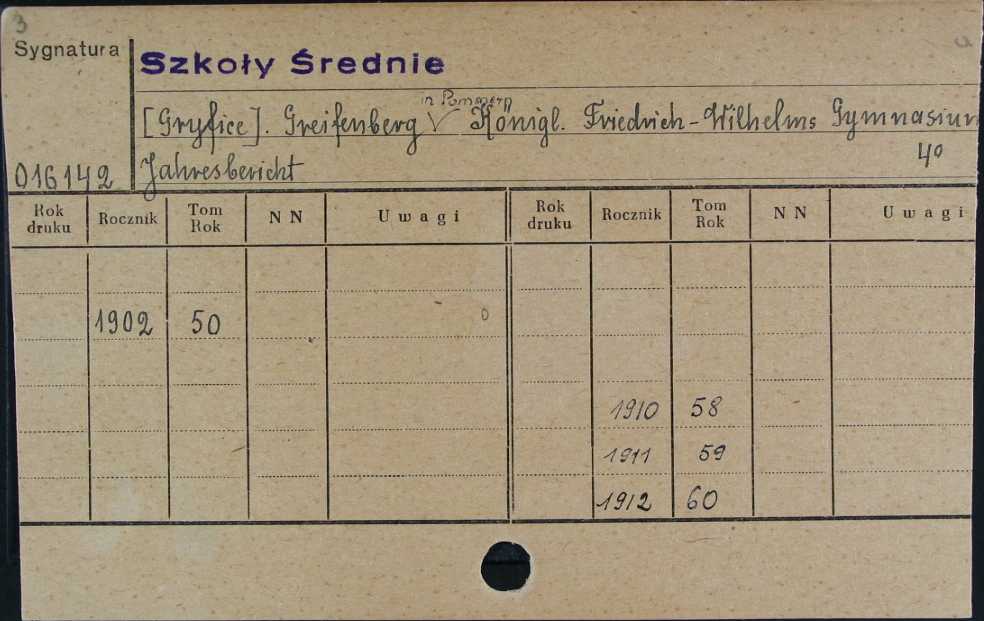 3
Sygnatura
Szkoły Średnie
in Pommern
[Gryfice]. Greifenberg √ Königl. Friedrich-Wilhelms Gymnasium
4°
016142 Jahresbericht
Rok druku Rocznik Tom Rok NN Uwagi Rok druku Rocznik Tom Rok NN Uwagi
1902 50 0
1910 58
1911 59
1912 60